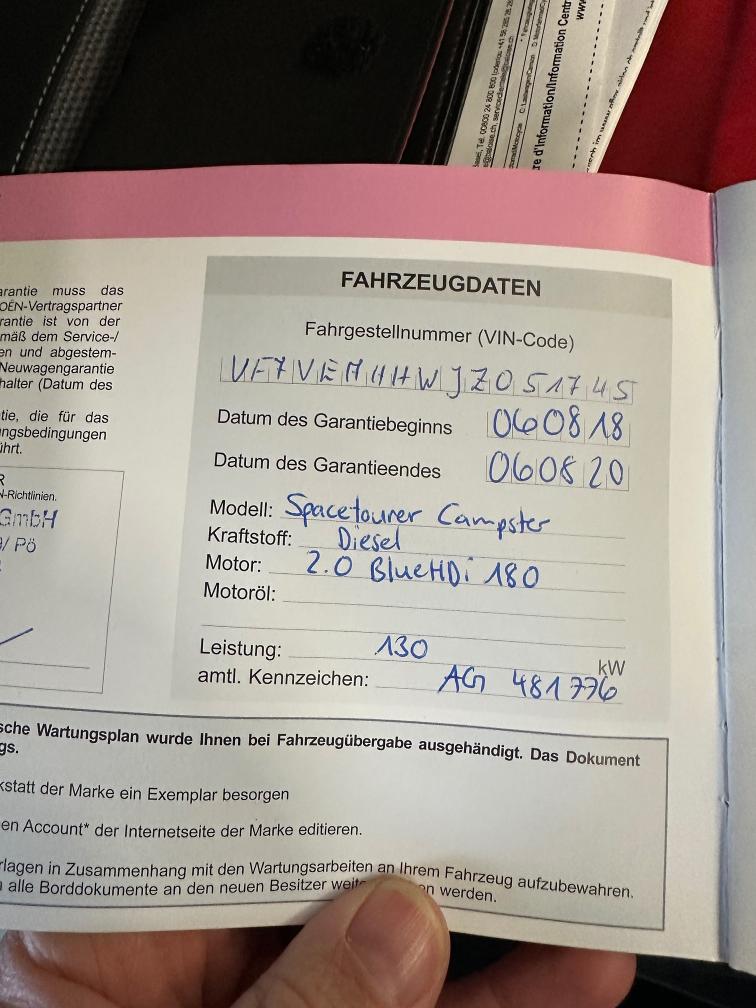 esel, Tel. 00800 24 800 800
re d'Information/Information Centr
www
FAHRZEUGDATEN
Fahrgestellnummer (VIN-Code)
VF7VEMHHWJZ051745
Datum des Garantiebeginns 060818
Datum des Garantieendes 060820
Modell: Spacetourer Campster
Kraftstoff: Diesel
Motor: 2.0 BlueHDi 180
Motoröl:
Leistung: 130 kW
amtl. Kennzeichen: AG 481776
arantie muss das
OËN-Vertragspartner
rantie ist von der
mäß dem Service-/
en und abgestem-
Neuwagengarantie
halter (Datum des
tie, die für das
ngsbedingungen
ührt.
R
N-Richtlinien.
GmbH
/ Pö
sche Wartungsplan wurde Ihnen bei Fahrzeugübergabe ausgehändigt. Das Dokument
gs.
kstatt der Marke ein Exemplar besorgen
en Account* der Internetseite der Marke editieren.
rlagen in Zusammenhang mit den Wartungsarbeiten an Ihrem Fahrzeug aufzubewahren.
alle Borddokumente an den neuen Besitzer weit en werden.